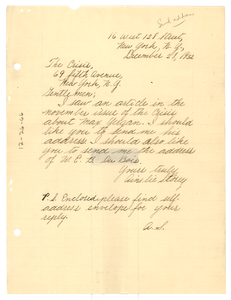 16 West 128 Street,
New York, N.Y.
December 21, 1932
The Crisis,
69 fifth avenue,
New York, N.Y.
Gentlemen;
I saw an article in the
november issue of the Crisis
about Max Yergan. I should
like you to send me his
address. I should also like
you to send me the address
of W. E. B. Du Bois.
Yours truly
Storey
P.S. Enclosed please find self-
address envelope for your
reply.
A.S.
12-22-66